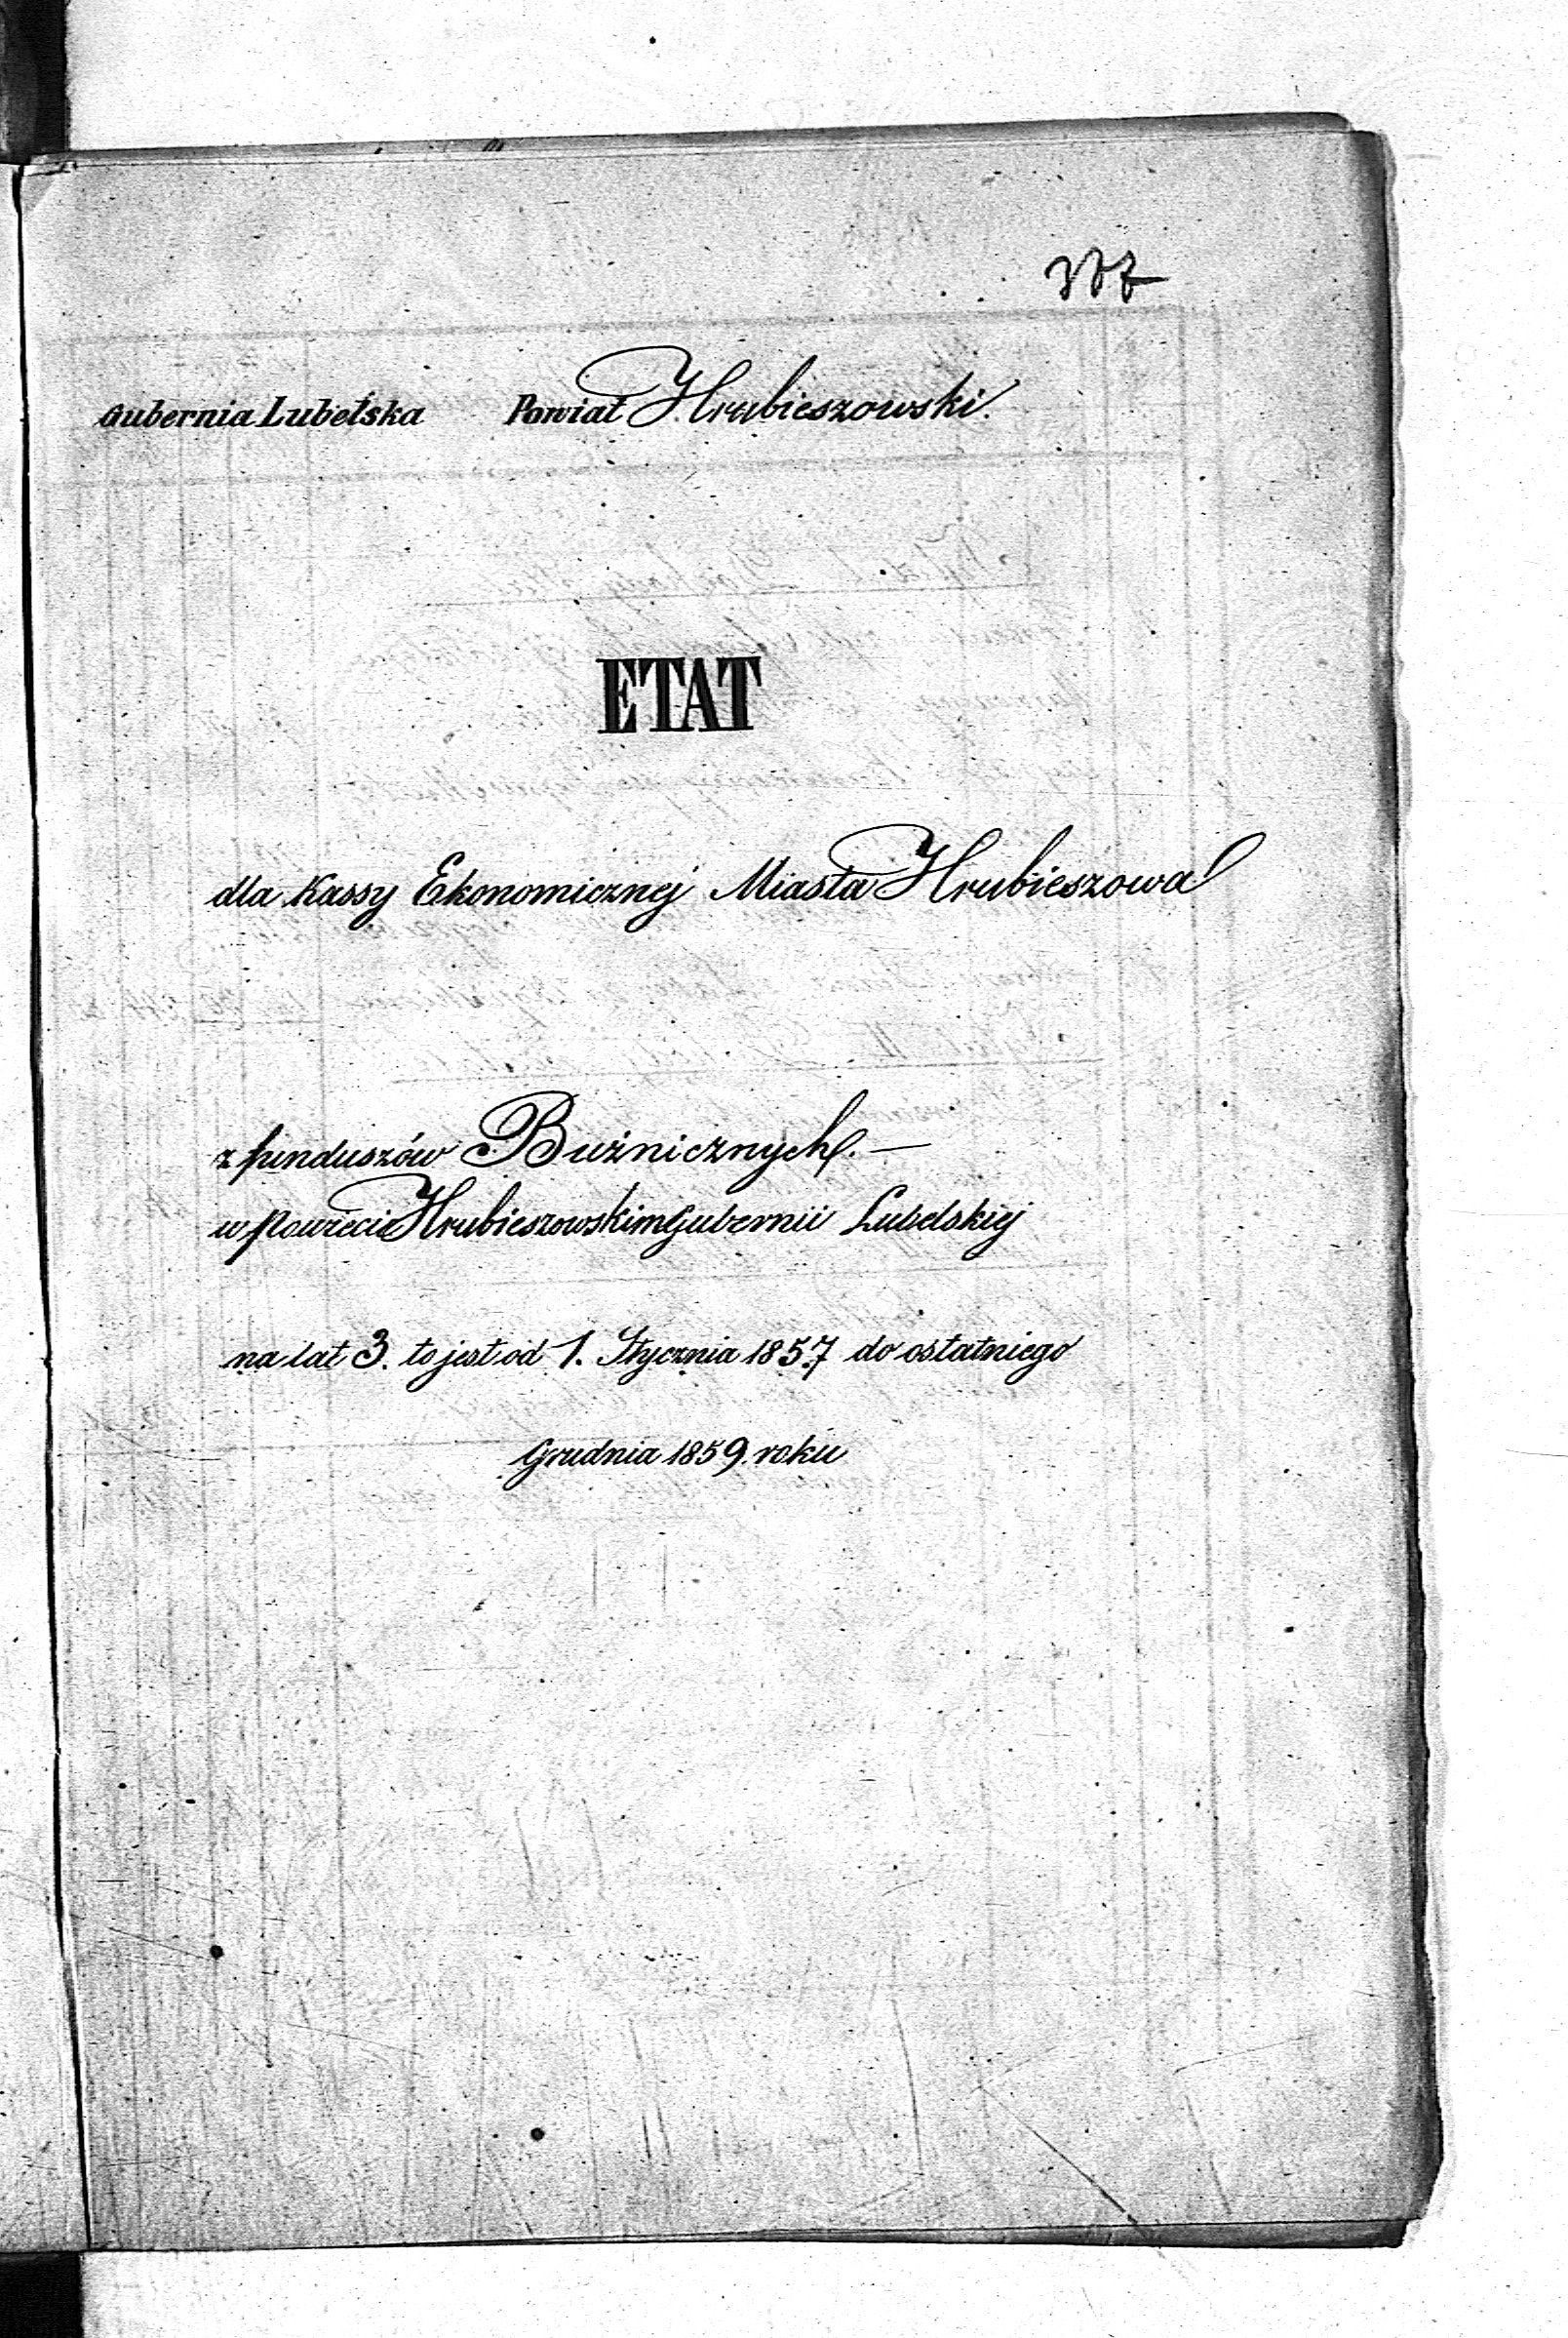 377
Gubernia Lubelska Powiat Hrubieszowski.
ETAT
dla Kassy Ekonomicznej Miasta Hrubieszowa
z funduszów Bużnicznych. —
w Powiecie Hrubieszowskim Gubernii Lubelskiej
na lat 3. to jest od 1. Stycznia 1857 do ostatniego
Grudnia 1859. roku